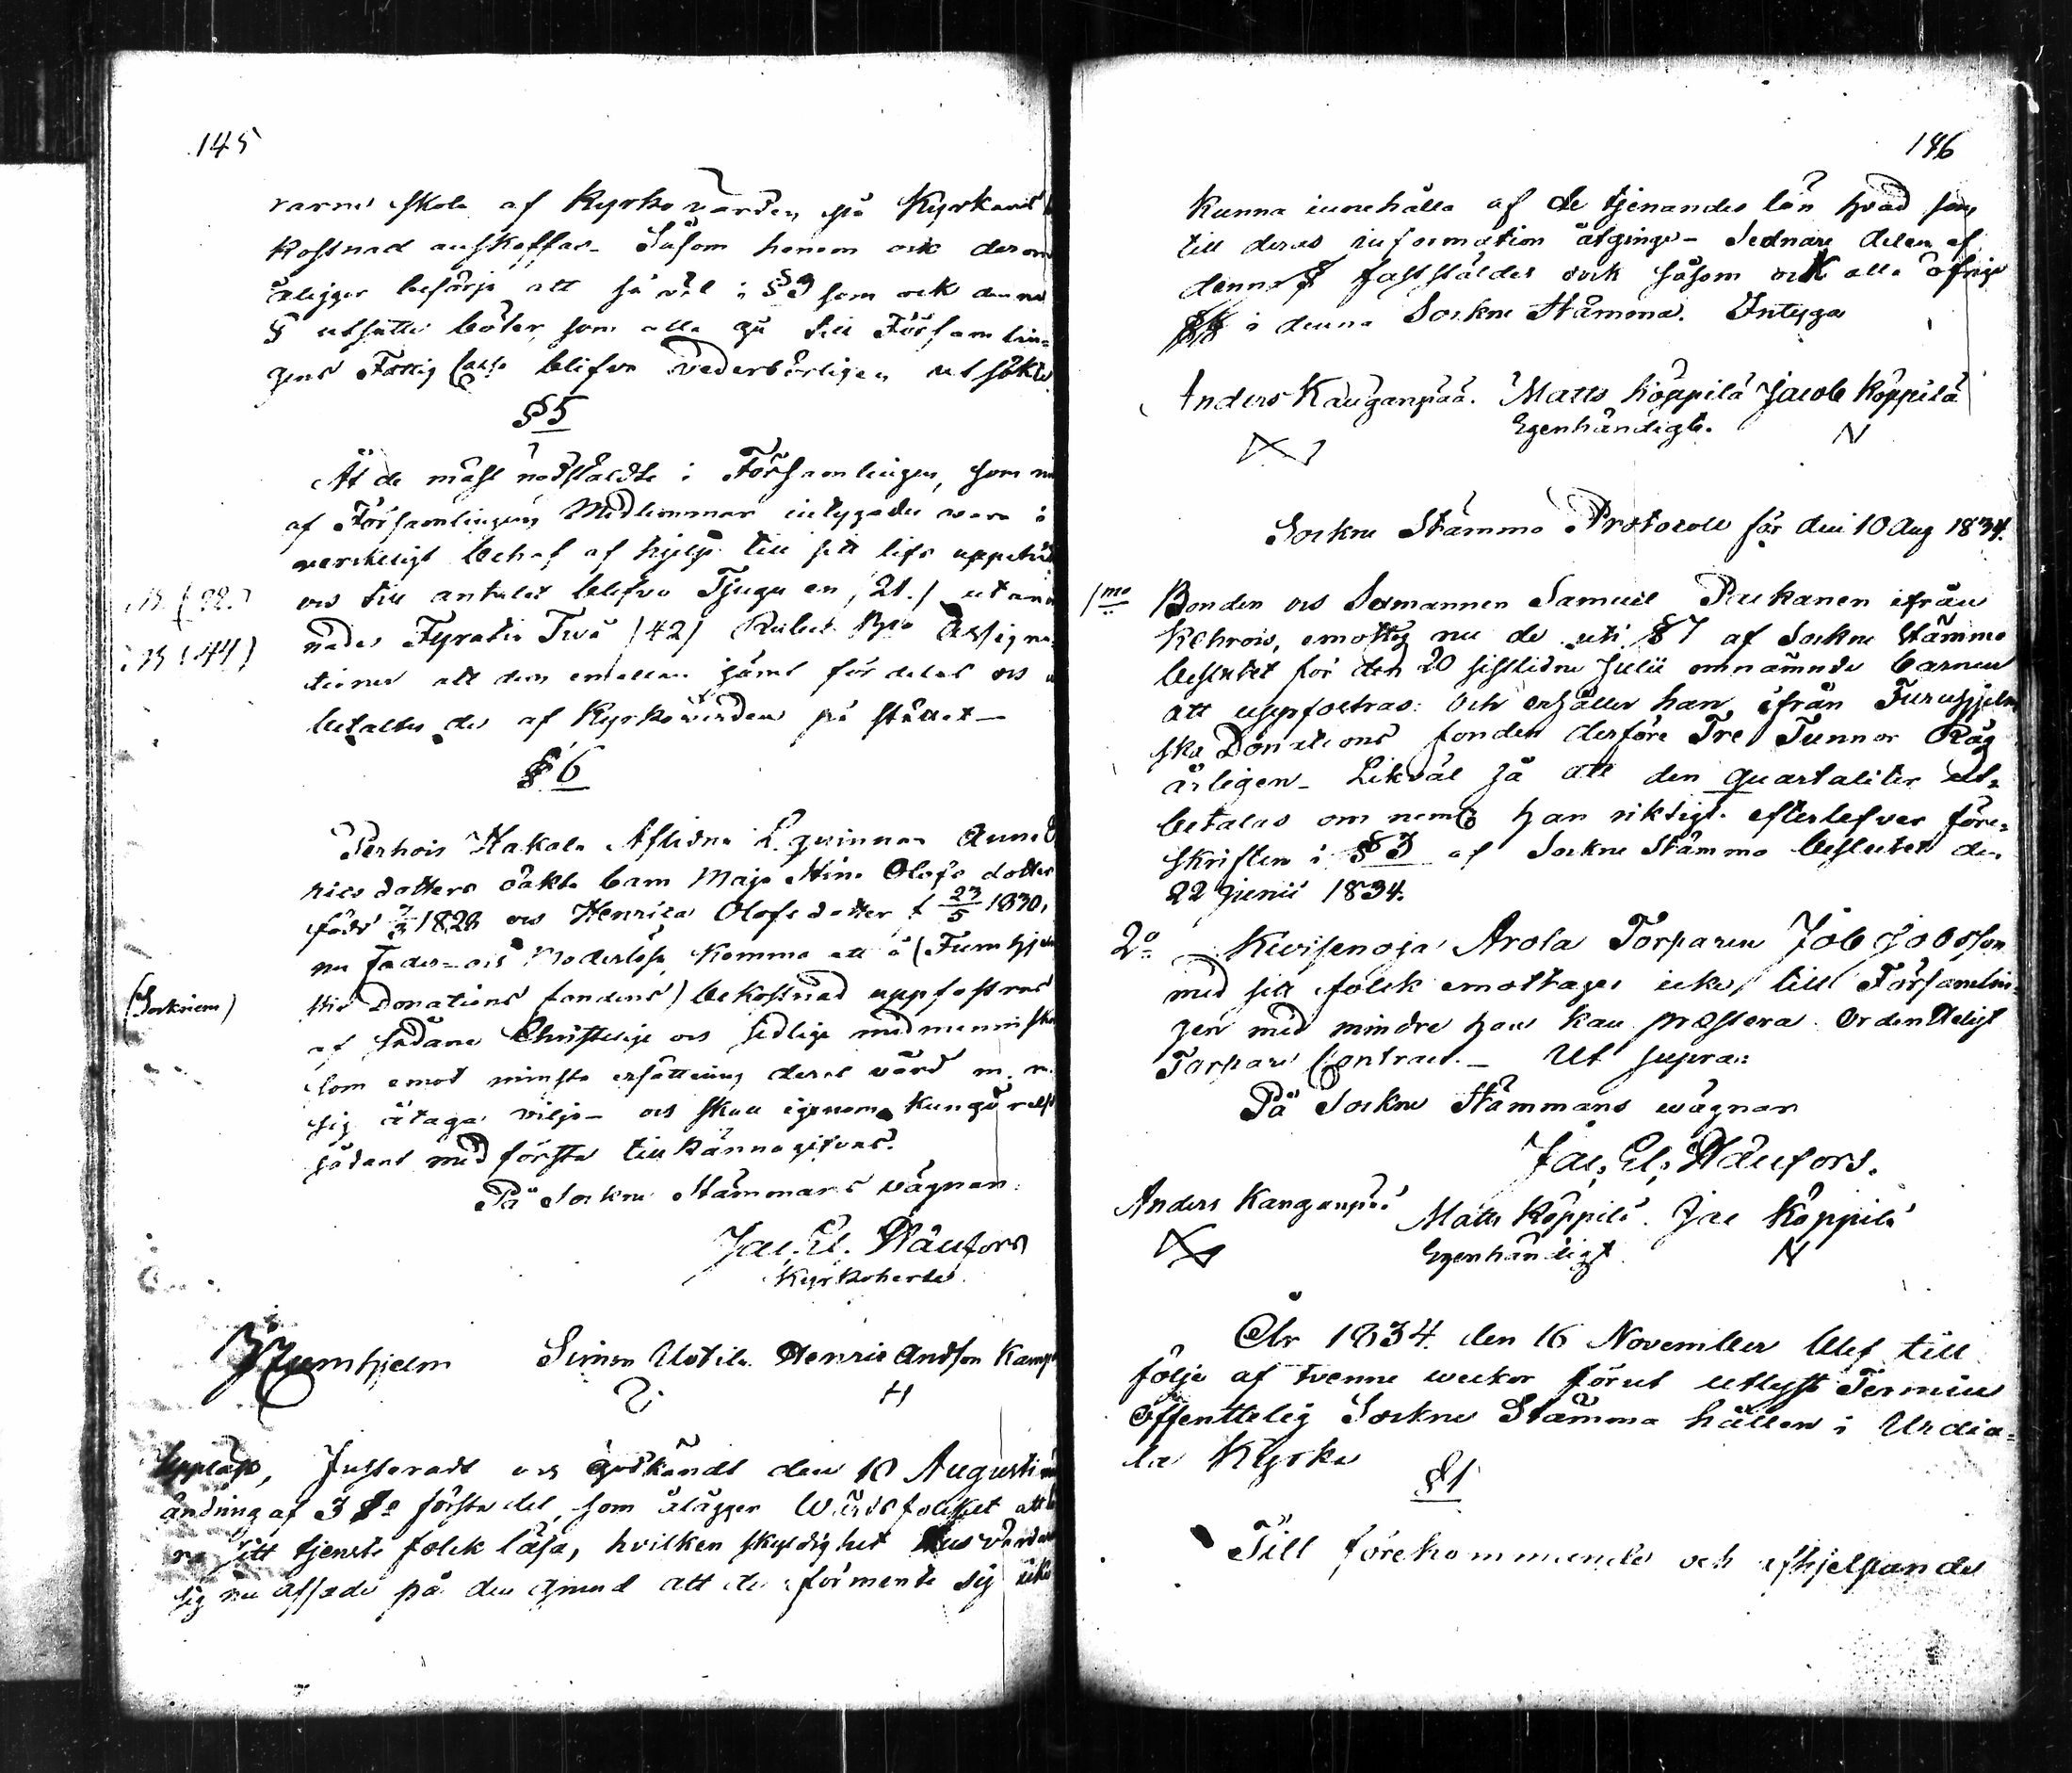 145
varne skola af Kyrko värden på Kyrkans
kostnad anskaffas. Såsom honom ock derom
åligger besörja att så väl i § 3 som ock denna
§ utsatte böter, som alla gå till Församlin-
gens Fattig Cassa blifva vederbörligen utsökte
§ 5
Åt de mäst nödstälde i Församlingen, som nu
af Församlingens Medlemmar intygades vara i
verkeligt behof af hjelp till sitt lifs uppehälle
och till antalet blefvo Tjugu en /21./ utan
nades Fyratio Två /42/ Rubel Bco Assigna-
tioner att dem emellan jämt fördelas och
betaltes de af Kyrkovärden på stället —
§ 6
Perhois Hakala Aflidna L. qvinnan Anna
rics dotters oäkta barn Maja Stina Olofs dotter
född 1828 och Henrica Olofsdotter f 23/5 1830,
nu fader- och Moderlösa komma att å (Furuhjelm
(Socknens)
ska Donations fondens) bekostnad uppfostras
af sådane Christelige och sedlige medmenniskor
som emot minsta ersättning deras vård m. m.
sig åtaga vilja — och skall igenom kungörelse
sådant med första tillkännagifvas.
På Sockne Stämmans vägnar
Jac. El. Wänfors
Kyrkoherde
Furuhjelm Simon Uotila Henric Andsson Kamp
H
Uppläst, Justeradt och godkändt den 10 Augusti
ändring af 3 §s första del, som ålägger Wärdsfolket att
ra sitt tjenste folck läsa, hvilken skyldighet Husvärdar
sig nu afsade på den grund att de förmente sig icke
146
kunna innehålla af de tjenandes lön hvad som
till deras information åtginge — Sednare delen af
denna § fastställdes dock såsom ock alla öfrige
§§ i denna Sockne Stämma. Intyga
Anders Kanganpää. MattsKöppilä Jacob Köppilä
Egenhändigt. N
Sockne Stämmo Protocoll för den 10 Aug 1834.
1mo Bonden och Sexmannen Samuel Paukanen ifrån
Kehrois, emottog nu de uti § 7 af Sockne Stämmo
beslutet för den 20 sistlidne Julii omnämnde barnen
att uppfostras: och erhåller han ifrån Furuhjelm
ska Donations fonden derföre Tre Tunnor Råg
årligen — Likväl så att den quartaliter ut-
betalas om nemligen han riktigt efterlefver före-
skriften i § 3 af Sockne Stämmo beslutet den
22 Junii 1834.
2o Kuvisenoja Arola Torparen Job Jobsson
med sitt folck emottages icke till Församlin-
gen med mindre han kan præstera Ordenteligt
Torpare Contract. — Ut supra:
På Sockne Stämmans vägnar
Jac. El. Wänfors.
Anders Kanganpää Matts Köppilä. Jac Köppilä
Egenhändigt N
År 1834. den 16 November blef till
följe af tvenne veckor förut utlyst Termin
Offentelig Sockne Stämma hållen i Urdia-
la Kyrka
§ 1
Till förekommande och afhjelpande